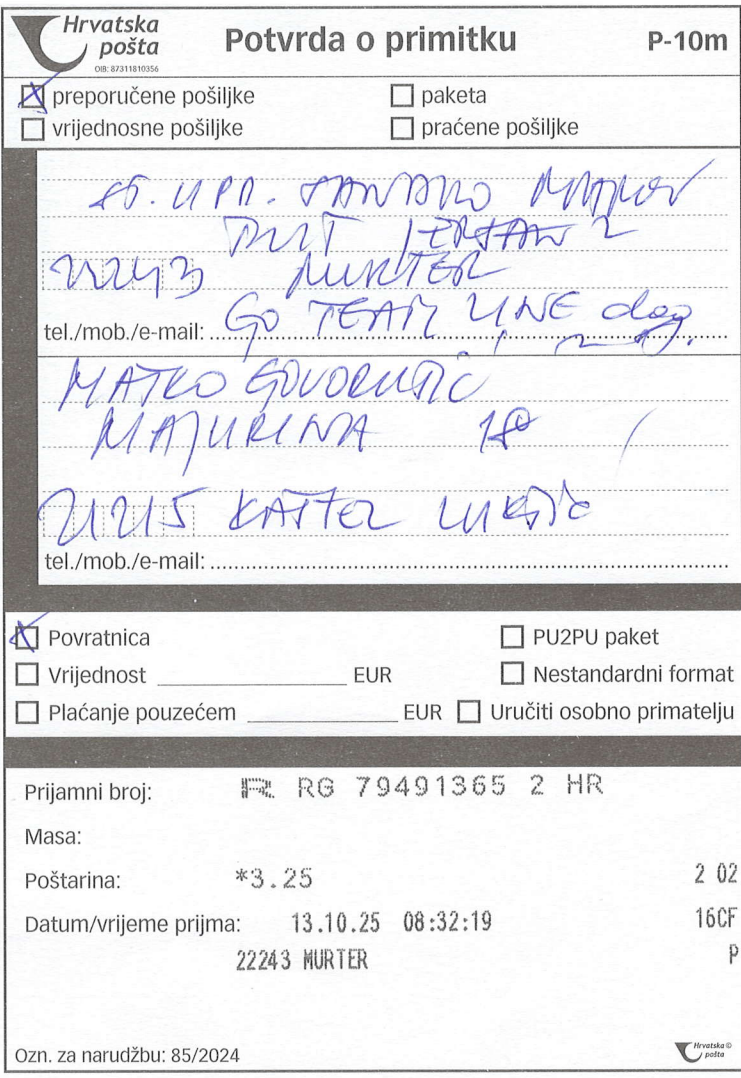 Hrvatska pošta
OIB: 87311810356
Potvrda o primitku
P-10m
preporučene pošiljke
paketa
vrijednosne pošiljke
praćene pošiljke
ST. UPR.
PUT 2
22243 MURTER
tel./mob./e-mail: GO TEAM LINE doo
MATKO
MAJURINA 18
21215 KAŠTEL LUKŠIĆ
tel./mob./e-mail:
Povratnica
PU2PU paket
Vrijednost EUR
Nestandardni format
Plaćanje pouzećem EUR
Uručiti osobno primatelju
Prijamni broj: R RG 79491365 2 HR
Masa:
Poštarina: *3.25 2 02
Datum/vrijeme prijma: 13.10.25 08:32:19 16CF
22243 MURTER P
Ozn. za narudžbu: 85/2024
Hrvatska pošta